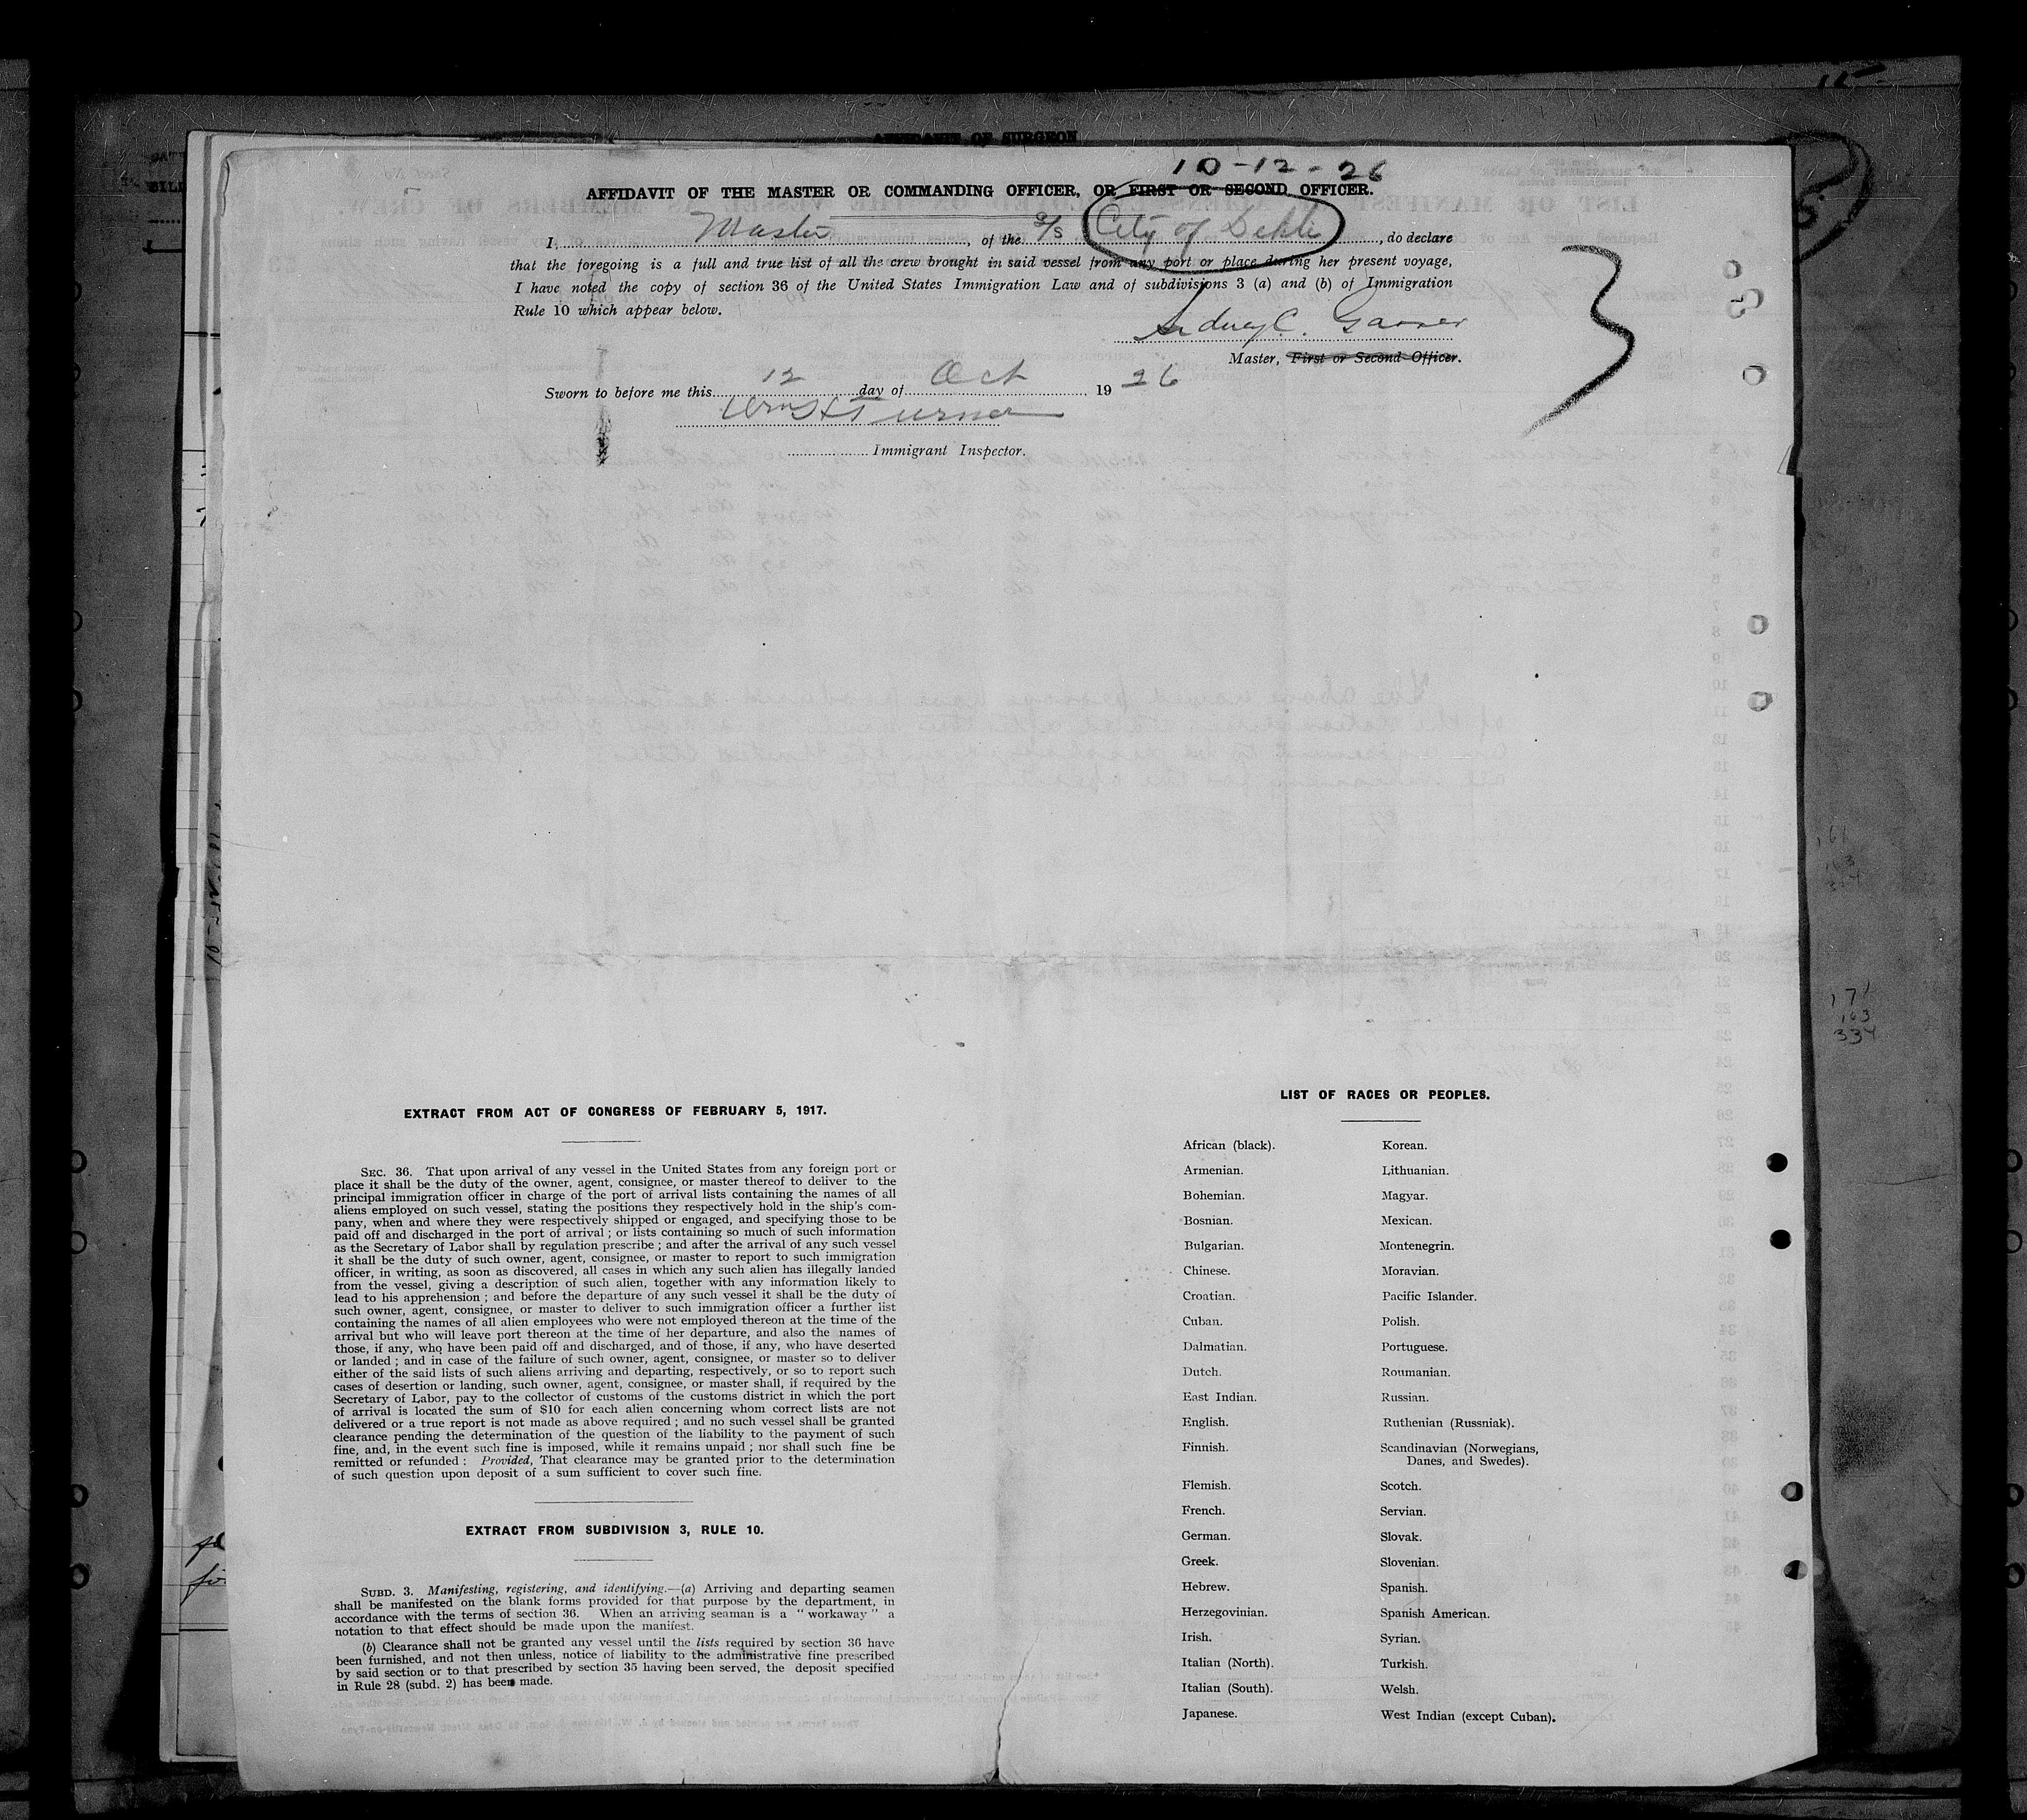 AFFIDAVIT OF SURGEON
10-12-26
AFFIDAVIT OF THE MASTER OR COMMANDING OFFICER, OR FIRST OR SECOND OFFICER.
I, Master, of the S/S City of Dehli, do declare
that the foregoing is a full and true list of all the crew brought in said vessel from any port or place during her present voyage,
I have noted the copy of section 36 of the United States Immigration Law and of subdivisions 3 (a) and (b) of Immigration
Rule 10 which appear below.
3
Sidney C.
Master, First or Second Officer.
Sworn to before me this 12 day of Oct 1926
Turner
Immigrant Inspector.
171
163
334
EXTRACT FROM ACT OF CONGRESS OF FEBRUARY 5, 1917.
SEC. 36. That upon arrival of any vessel in the United States from any foreign port or
place it shall be the duty of the owner, agent, consignee, or master thereof to deliver to the
principal immigration officer in charge of the port of arrival lists containing the names of all
aliens employed on such vessel, stating the positions they respectively hold in the ship's com-
pany, when and where they were respectively shipped or engaged, and specifying those to be
paid off and discharged in the port of arrival; or lists containing so much of such information
as the Secretary of Labor shall by regulation prescribe; and after the arrival of any such vessel
it shall be the duty of such owner, agent, consignee, or master to report to such immigration
officer, in writing, as soon as discovered, all cases in which any such alien has illegally landed
from the vessel, giving a description of such alien, together with any information likely to
lead to his apprehension; and before the departure of any such vessel it shall be the duty of
such owner, agent, consignee, or master to deliver to such immigration officer a further list
containing the names of all alien employees who were not employed thereon at the time of the
arrival but who will leave port thereon at the time of her departure, and also the names of
those, if any, who have been paid off and discharged, and of those, if any, who have deserted
or landed; and in case of the failure of such owner, agent, consignee, or master so to deliver
either of the said lists of such aliens arriving and departing, respectively, or so to report such
cases of desertion or landing, such owner, agent, consignee, or master shall, if required by the
Secretary of Labor, pay to the collector of customs of the customs district in which the port
of arrival is located the sum of $10 for each alien concerning whom correct lists are not
delivered or a true report is not made as above required; and no such vessel shall be granted
clearance pending the determination of the question of the liability to the payment of such
fine, and, in the event such fine is imposed, while it remains unpaid; nor shall such fine be
remitted or refunded: Provided, That clearance may be granted prior to the determination
of such question upon deposit of a sum sufficient to cover such fine.
EXTRACT FROM SUBDIVISION 3, RULE 10.
SUBD. 3. Manifesting, registering, and identifying.—(a) Arriving and departing seamen
shall be manifested on the blank forms provided for that purpose by the department, in
accordance with the terms of section 36. When an arriving seaman is a "workaway" a
notation to that effect should be made upon the manifest.
(b) Clearance shall not be granted any vessel until the lists required by section 36 have
been furnished, and not then unless, notice of liability to the administrative fine prescribed
by said section or to that prescribed by section 35 having been served, the deposit specified
in Rule 28 (subd. 2) has been made.
LIST OF RACES OR PEOPLES.
African (black).
Armenian.
Bohemian.
Bosnian.
Bulgarian.
Chinese.
Croatian.
Cuban.
Dalmatian.
Dutch.
East Indian.
English.
Finnish.
Flemish.
French.
German.
Greek.
Hebrew.
Herzegovinian.
Irish.
Italian (North).
Italian (South).
Japanese.
Korean.
Lithuanian.
Magyar.
Mexican.
Montenegrin.
Moravian.
Pacific Islander.
Polish.
Portuguese.
Roumanian.
Russian.
Ruthenian (Russniak).
Scandinavian (Norwegians,
Danes, and Swedes).
Scotch.
Servian.
Slovak.
Slovenian.
Spanish.
Spanish American.
Syrian.
Turkish.
Welsh.
West Indian (except Cuban).